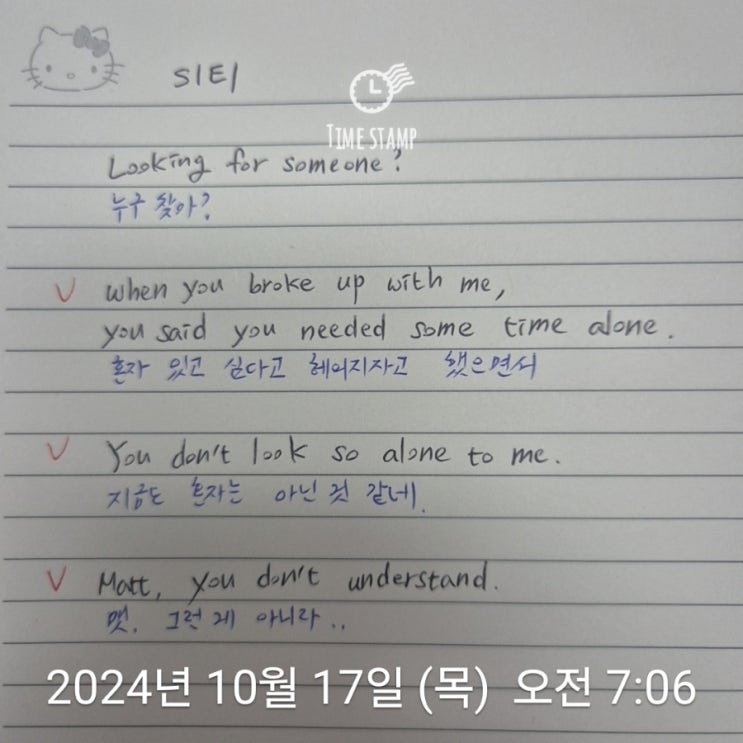 S1E1
TIME STAMP
Looking for someone?
누구 찾아?
V when you broke up with me,
you said you needed some time alone.
혼자 있고 싶다고 헤어지자고 했으면서
V You don't look so alone to me.
지금도 혼자는 아닌 것 같네.
V Matt, you don't understand.
맷. 그런 게 아니라..
2024년 10월 17일 (목) 오전 7:06